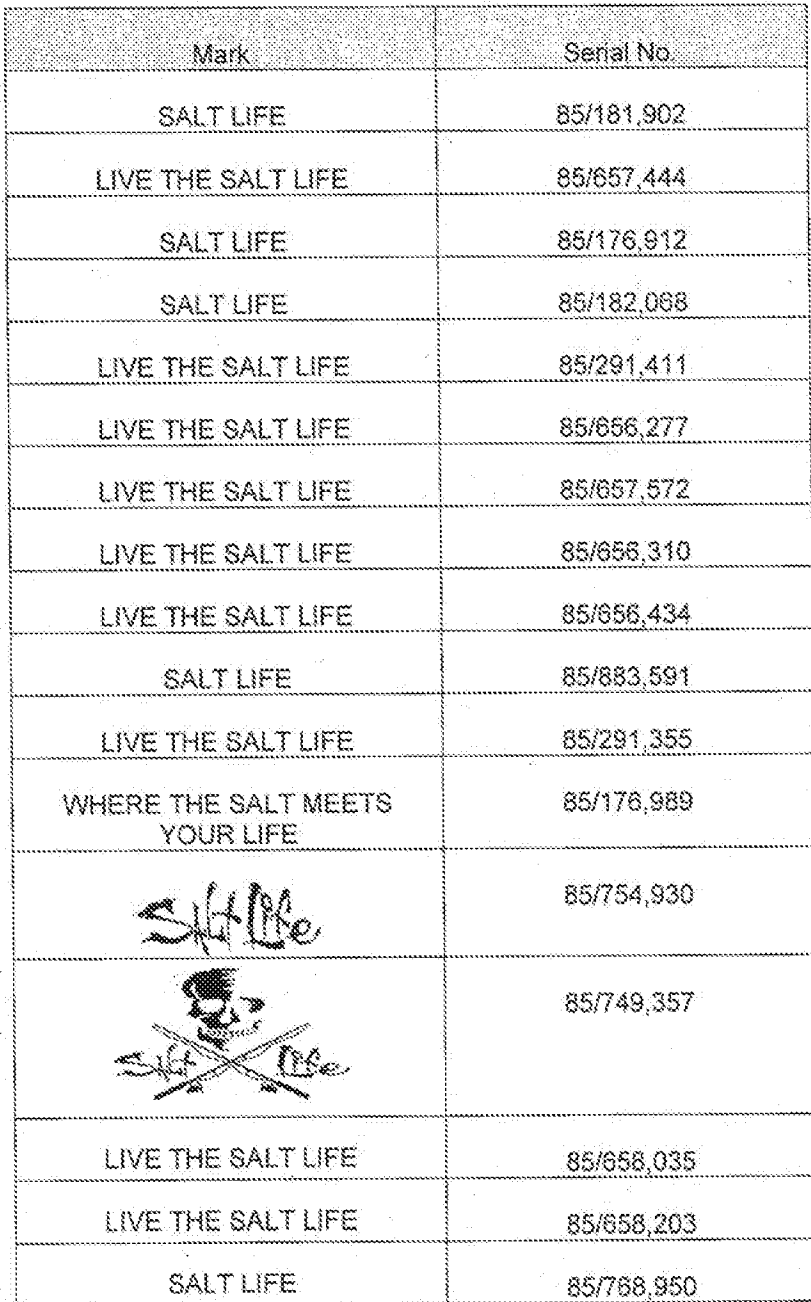 Mark Serial No.
SALT LIFE 85/181,902
LIVE THE SALT LIFE 85/657,444
SALT LIFE 85/176,912
SALT LIFE 85/182,068
LIVE THE SALT LIFE 85/291,411
LIVE THE SALT LIFE 85/656,277
LIVE THE SALT LIFE 85/657,572
LIVE THE SALT LIFE 85/656,310
LIVE THE SALT LIFE 85/656,434
SALT LIFE 85/883,591
LIVE THE SALT LIFE 85/291,355
WHERE THE SALT MEETS 85/176,989
YOUR LIFE
Salt Life 85/754,930
85/749,357
Salt Life
LIVE THE SALT LIFE 85/658,035
LIVE THE SALT LIFE 85/658,203
SALT LIFE 85/768,950